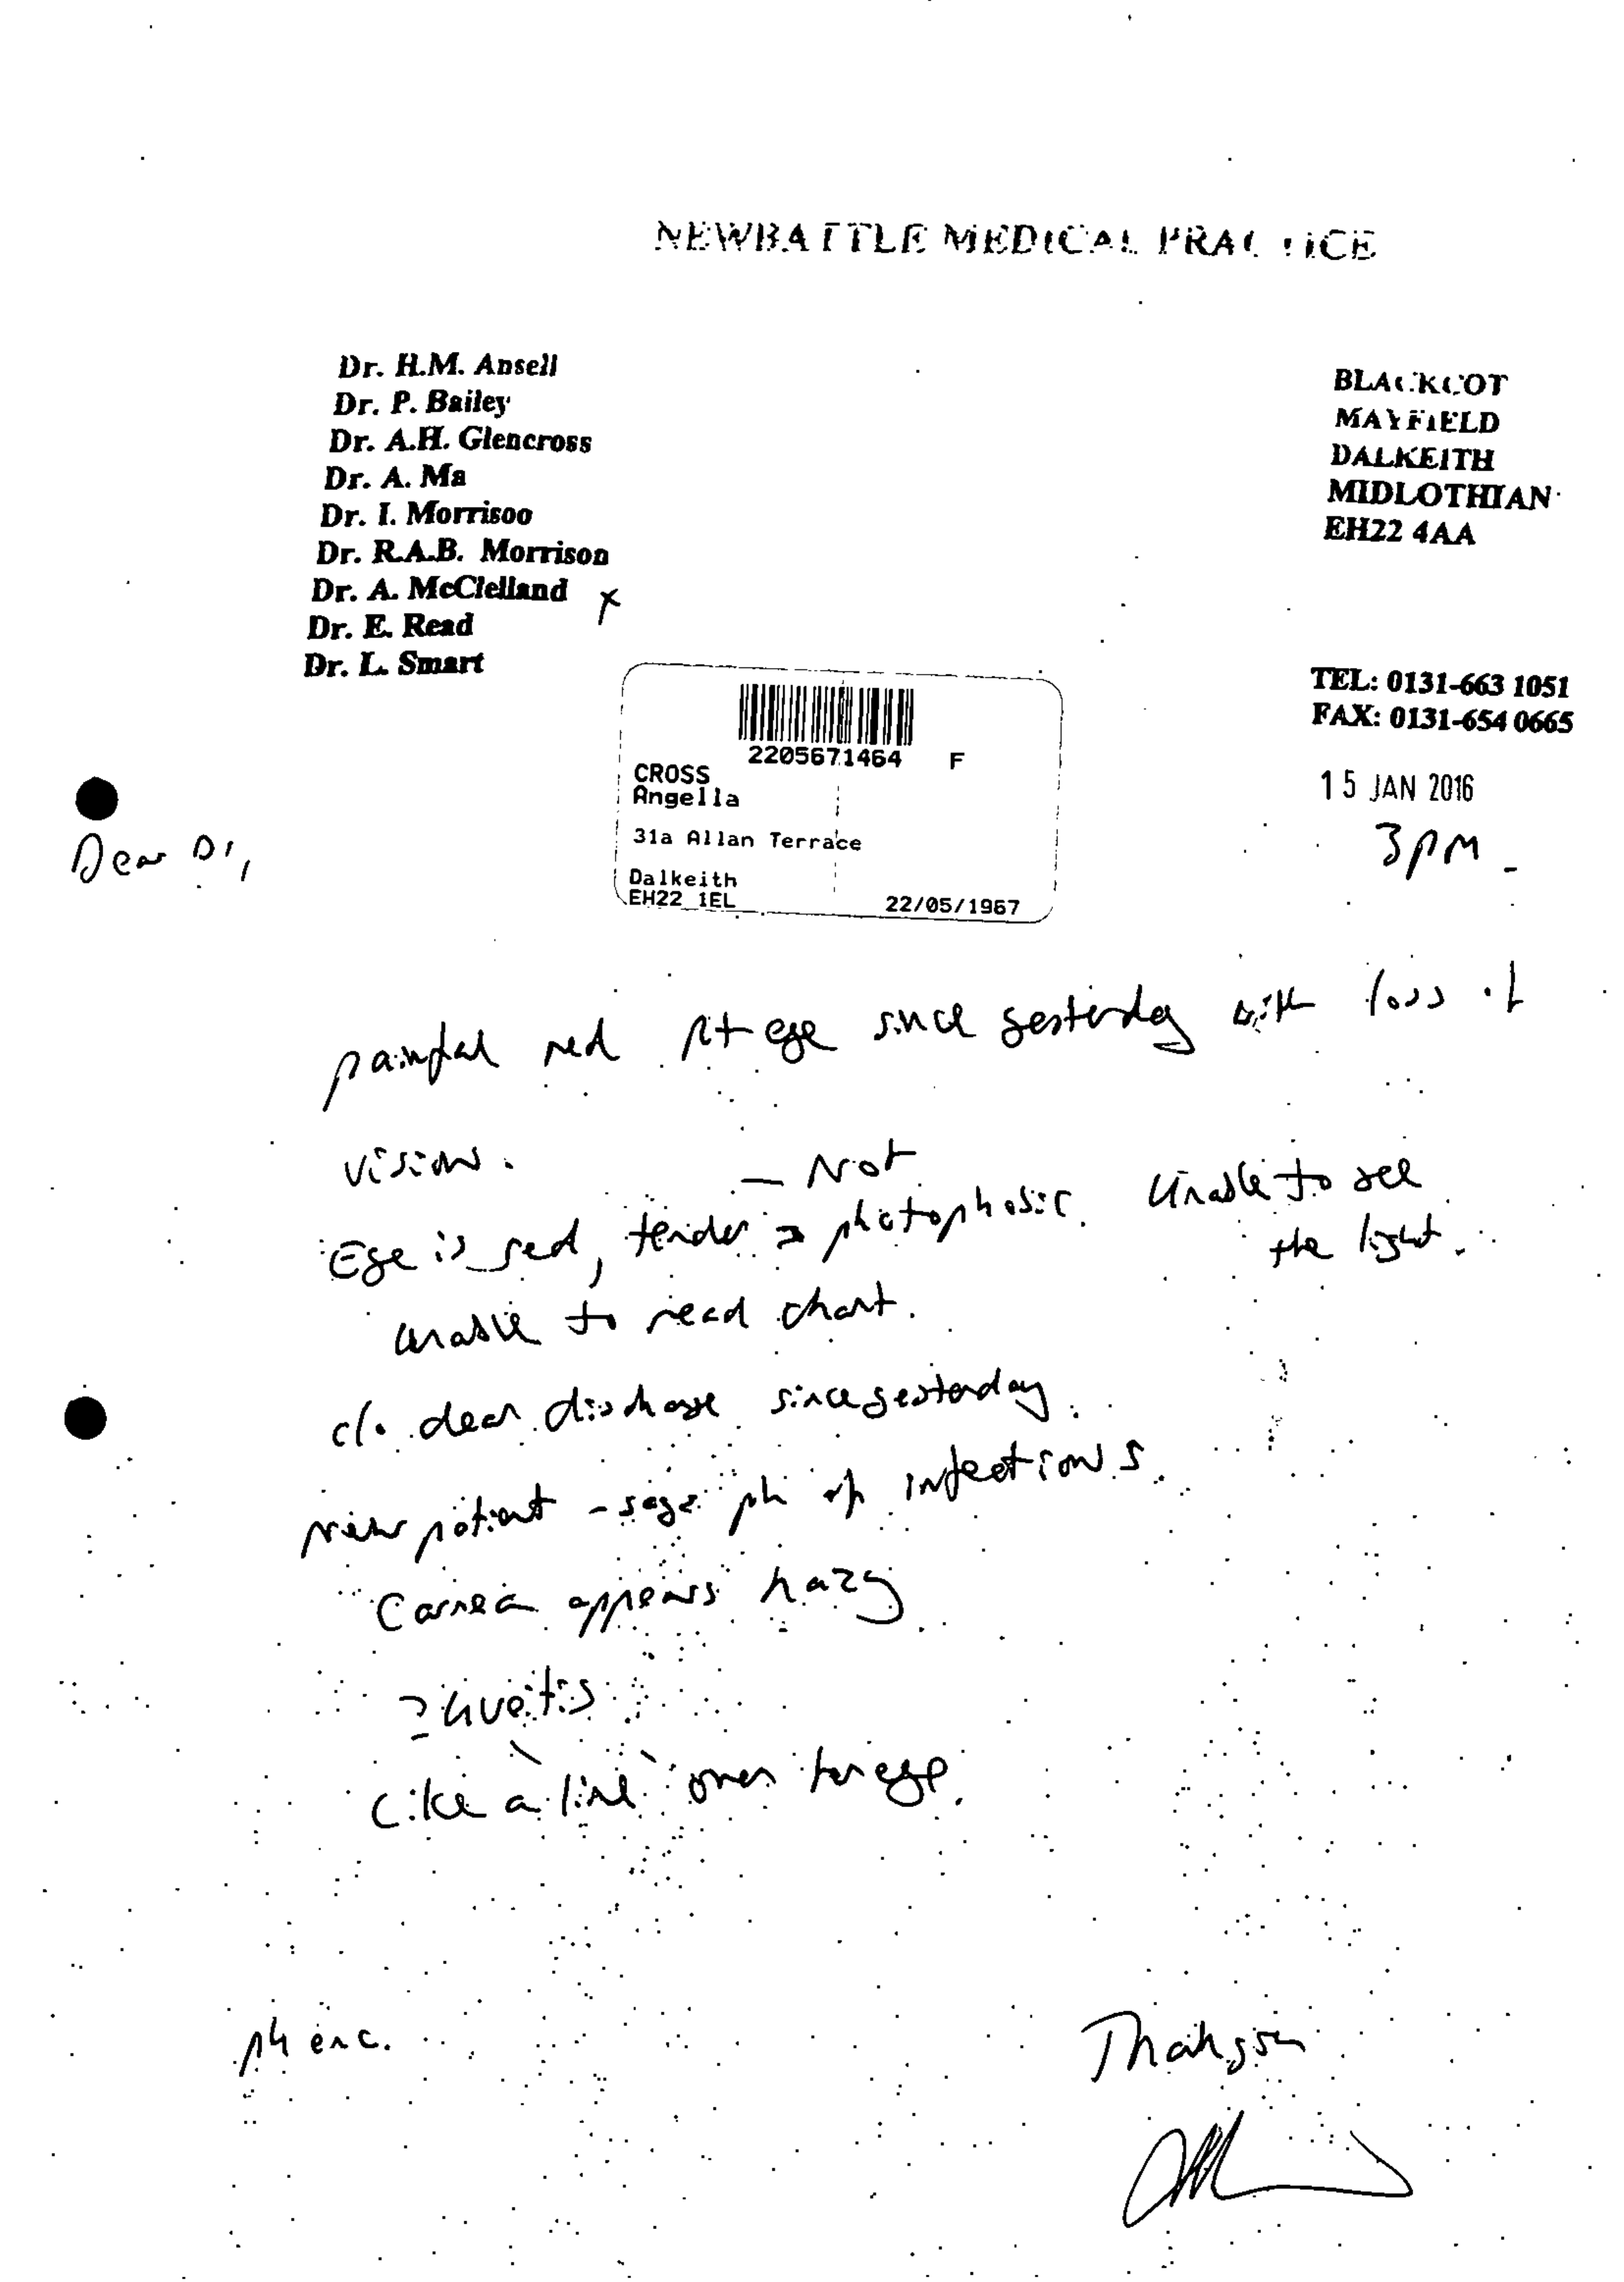 NEWBATTLE MEDICAL PRACTICE
Dr. H.M. Ansell
Dr. P. Bailey
Dr. A.H. Glencross
Dr. A. Ma
Dr. I. Morrison
Dr. R.A.B. Morrison
Dr. A. McClelland x
Dr. E. Read
Dr. L. Smart
BLACKCOT
MAYFIELD
DALKEITH
MIDLOTHIAN
EH22 4AA
TEL: 0131-663 1051
FAX: 0131-654 0665
15 JAN 2016
3PM
2205671464 F
CROSS
Angella
31a Allan Terrace
Dalkeith
EH22 1EL 22/05/1967
Dear Dr,
painful red Rt eye since yesterday with loss of
vision.
— Not
Eye is red, tender photophobic. Unable to see
the light.
unable to read chart.
c/o clear discharge since yesterday.
New patient - says ph of infections.
Cornea appears hazy
? uveitis
Like a 'line' over her eye.
PH enc.
Thankyou